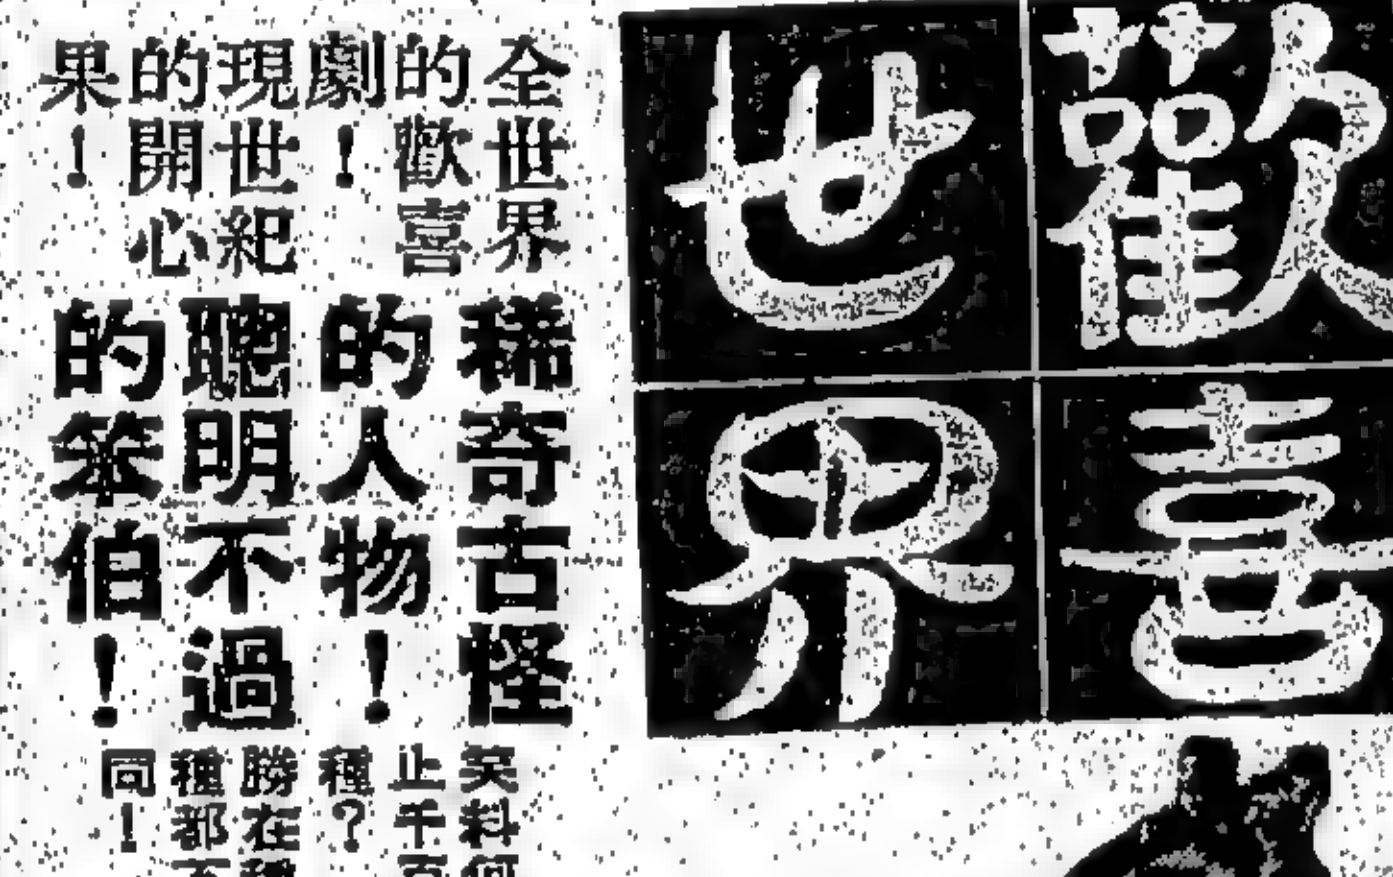 歡喜
世界
全世界
的歡喜
劇！
現世紀
的開心
果！
稀奇古怪
的人物！
聰明不過
的笨伯！
笑料何
止千百
種？
勝在種
種都不
同！